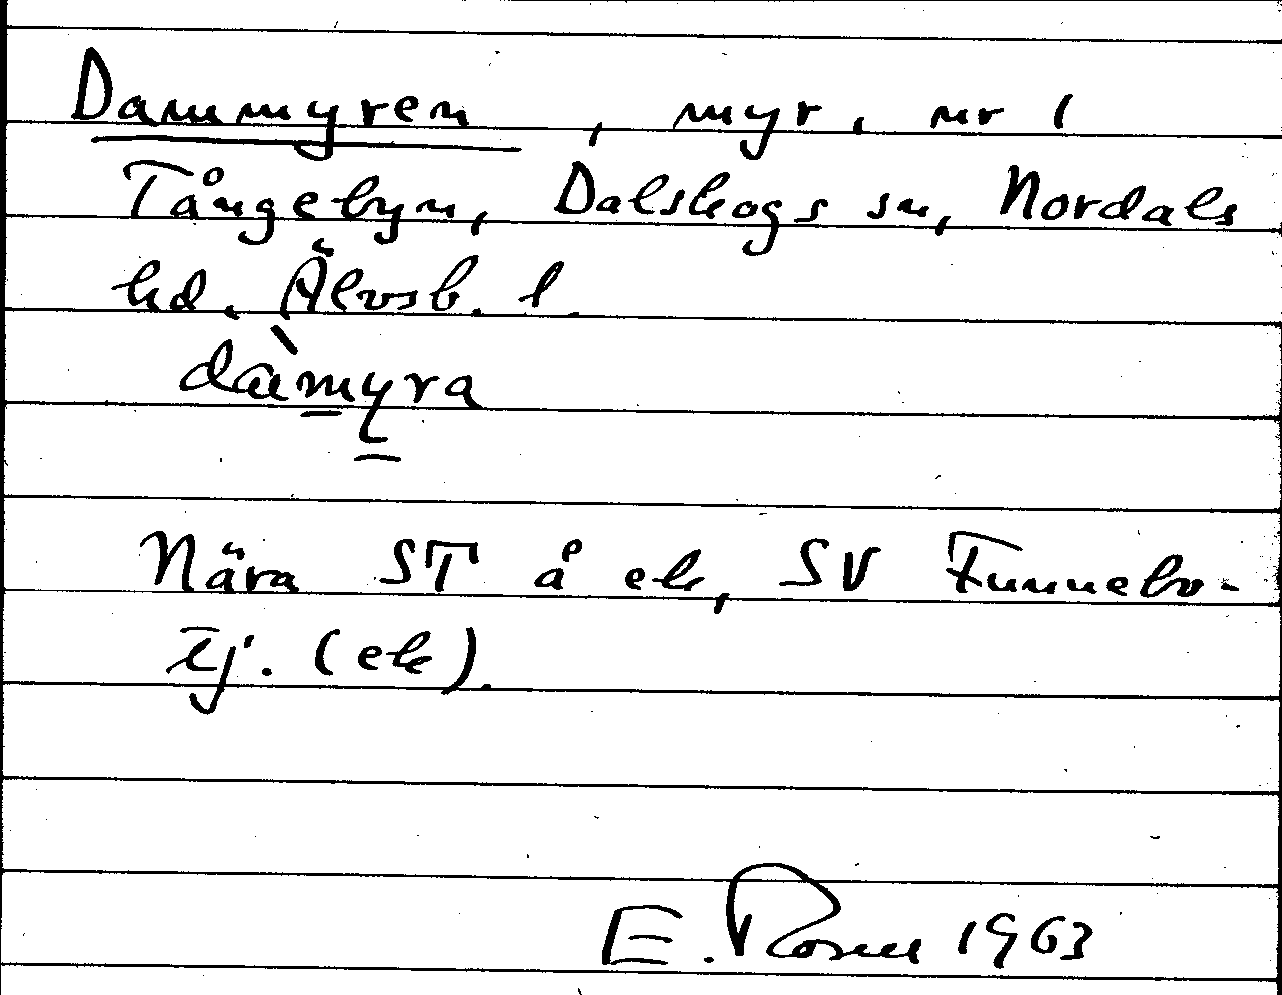 Dammyren, myr, nr 1
Tångebyn, Dalskogs sn, Nordals
hd. Älvsb. l.
dàmyra
Nära ST å ek, SV Funnebo-
tj. (ek).
E. Rosell 1963